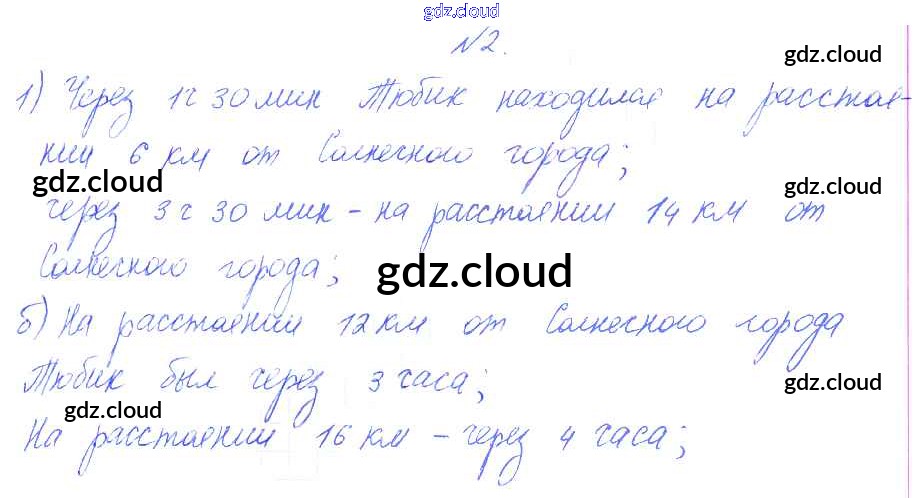 gdz.cloud
№2.
gdz.cloud
1) Через 1ч 30 мин Тюбик находился на расстоя-
нии 6 км от Солнечного города;
gdz.cloud
gdz.cloud
через 3 ч 30 мин - на расстоянии 14 км от
Солнечного города;
gdz.cloud
б) На расстоянии 12 км от Солнечного города
gdz.cloud
Тюбик был через 3 часа;
gdz.cloud
gdz.cloud
На расстоянии 16 км - через 4 часа;
gdz.cloud
gdz.cloud